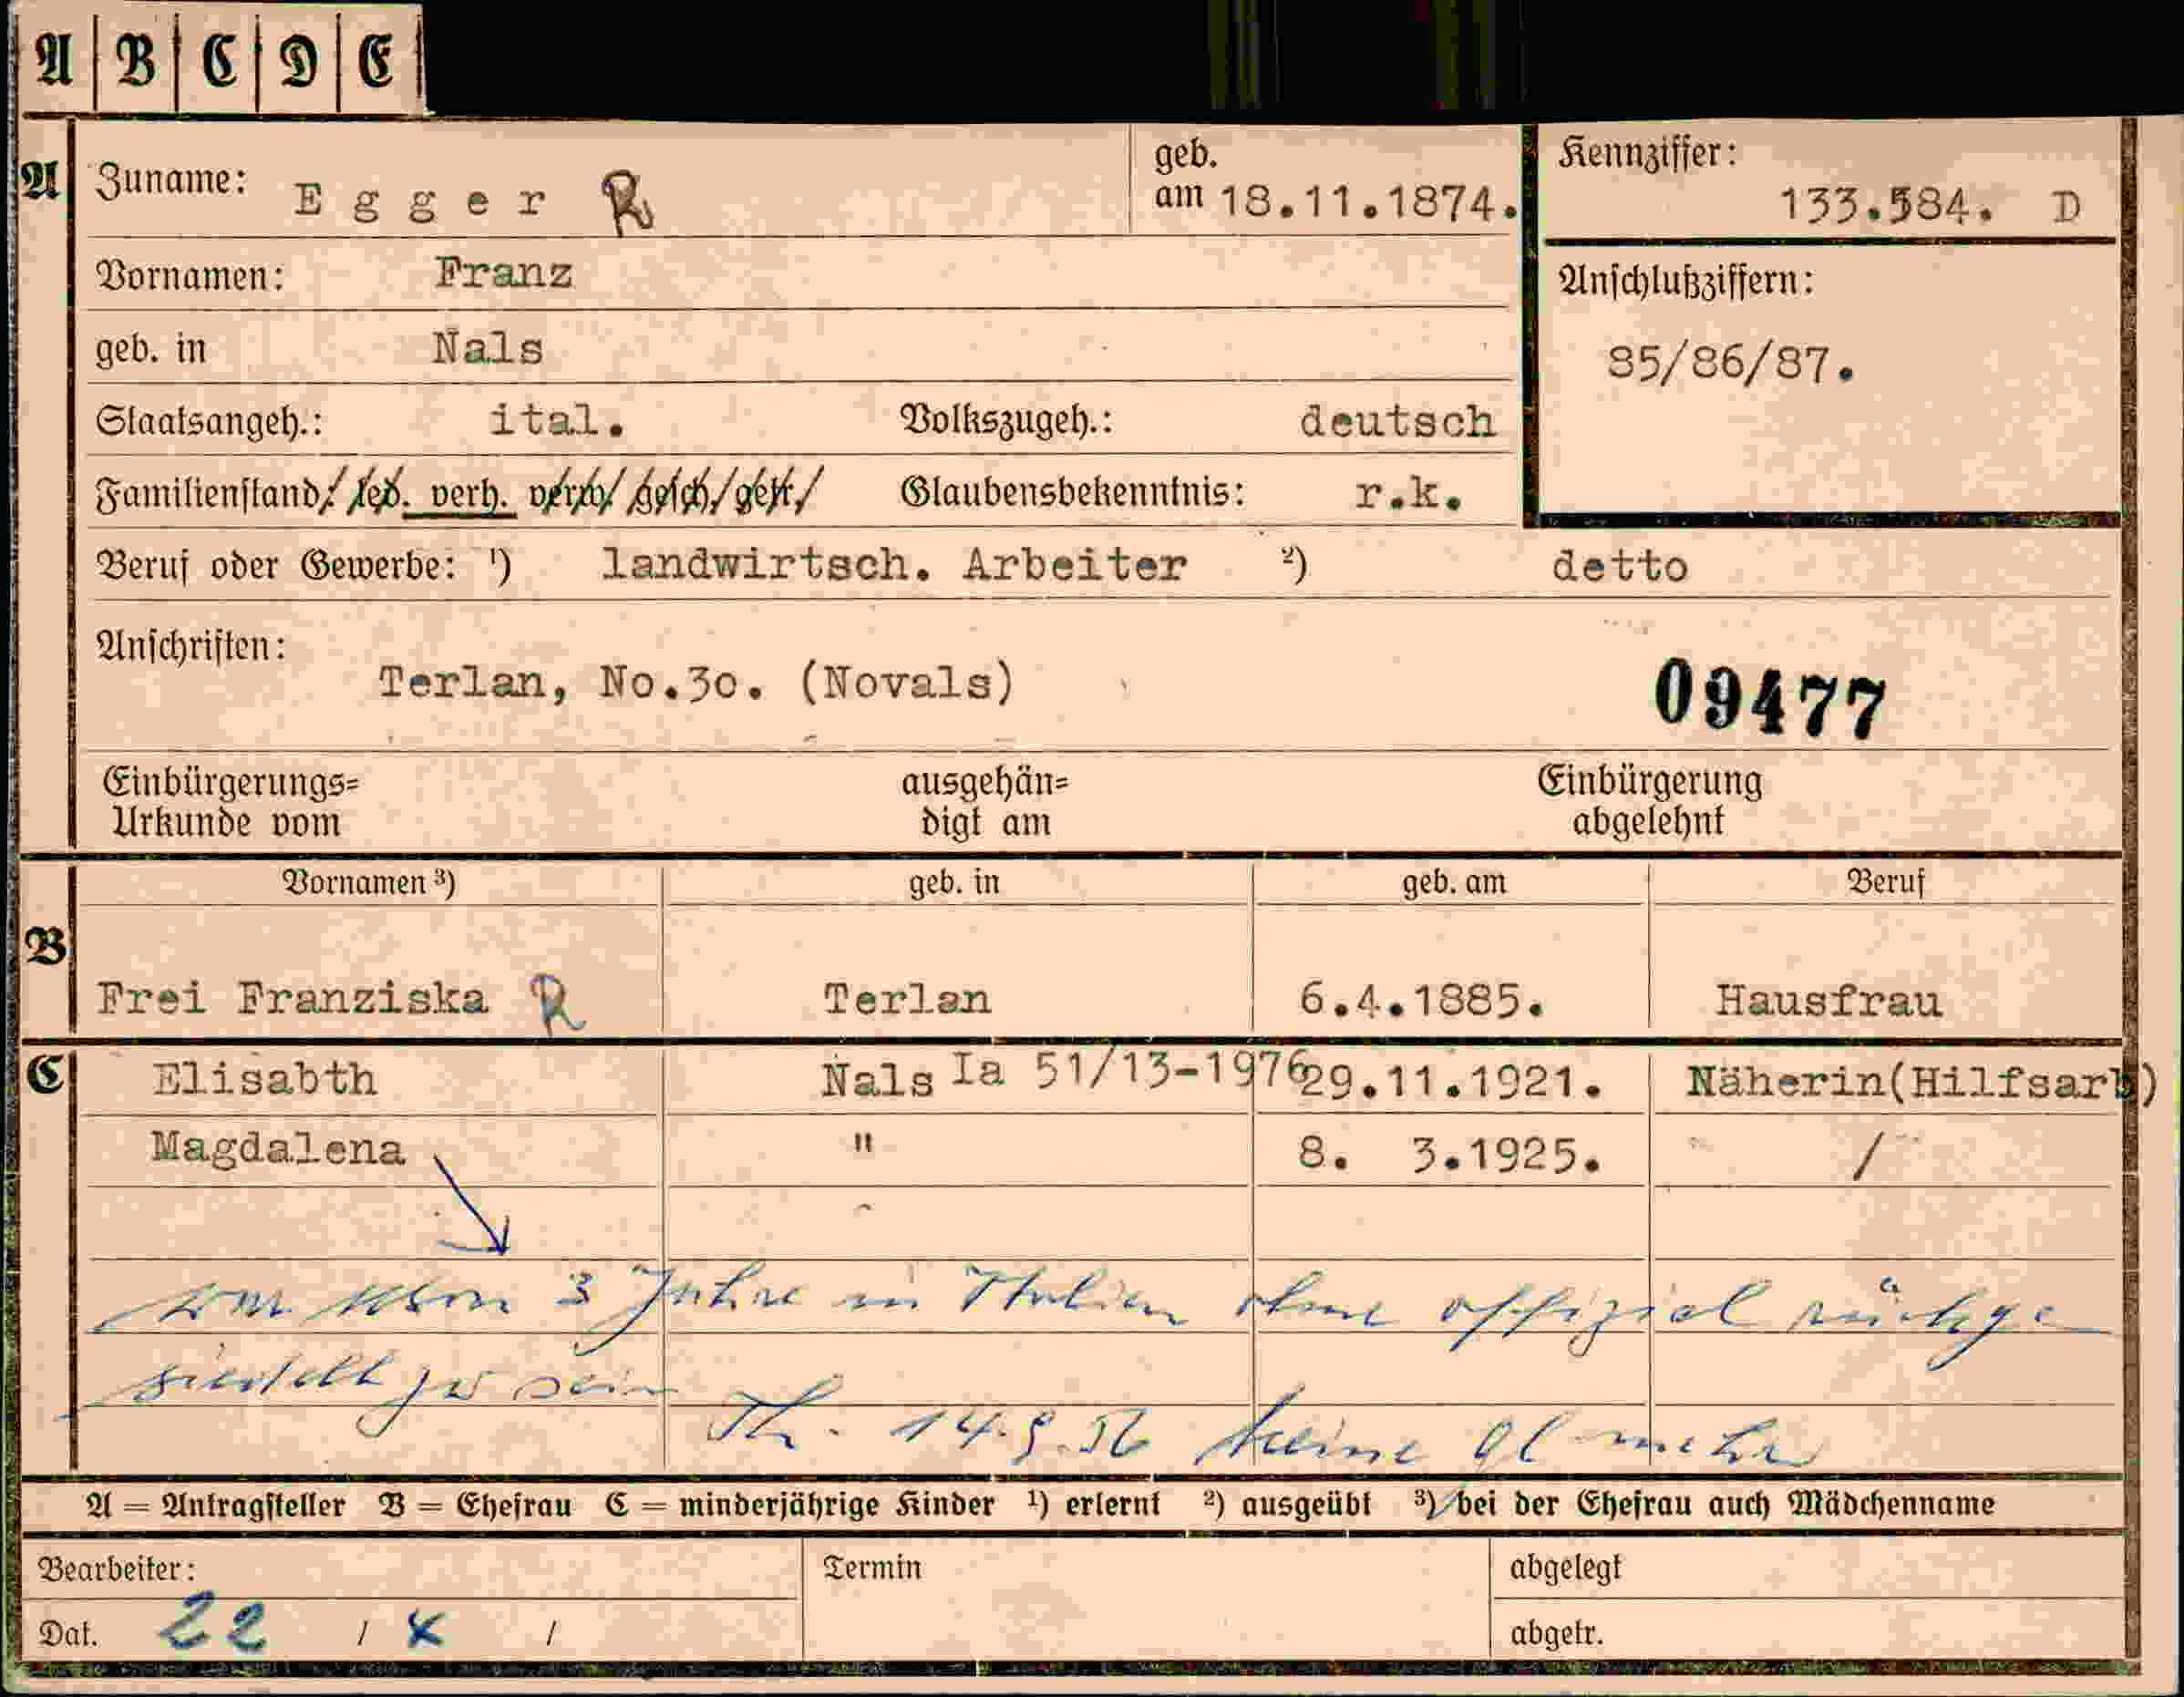 A B C D E
A Zuname: Egger R geb. am 18.11.1874. Kennziffer: 133.584. D
Vornamen: Franz Anschlußziffern:
geb. in Nals 85/86/87.
Staatsangeh.: ital. Volkszugeh.: deutsch
Familienstand: led. verh. verw. gesch. getr. Glaubensbekenntnis: r.k.
Beruf oder Gewerbe: ¹) landwirtsch. Arbeiter ²) detto
Anschriften: Terlan, No.30. (Novals) 09477
Einbürgerungs= ausgehän= Einbürgerung
Urkunde vom digt am abgelehnt
Vornamen ³) geb. in geb. am Beruf
B Frei Franziska R Terlan 6.4.1885. Hausfrau
C Elisabth Nals Ia 51/13-1976 29.11.1921. Näherin(Hilfsarb)
Magdalena " 8. 3.1925. /
3 Jahre in Italien ohne offiziel rückge
siedelt zu sein
14.9.56 keine mehr
A = Antragsteller B = Ehefrau C = minderjährige Kinder ¹) erlernt ²) ausgeübt ³) bei der Ehefrau auch Mädchenname
Bearbeiter: Termin abgelegt
Dat. 22 / X / abgetr.